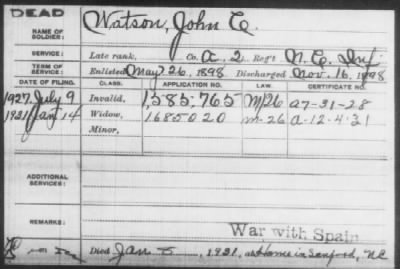 DEAD
NAME OF SOLDIER: Watson, John C.
SERVICE: Late rank, Co. A, 2 Reg't N.C. Inf
TERM OF SERVICE: Enlisted May 26, 1898 Discharged Nov. 16, 1898
DATE OF FILING. CLASS. APPLICATION NO. LAW. CERTIFICATE NO.
1927, July 9 Invalid, 1,585,765 M26 A7-31-28
1931 Jan 14 Widow, 1685020 M-26 A-12-4-31
Minor,
ADDITIONAL SERVICES:
REMARKS: War with Spain
Died Jan. 5, 1931, at Home in Sanford, NC